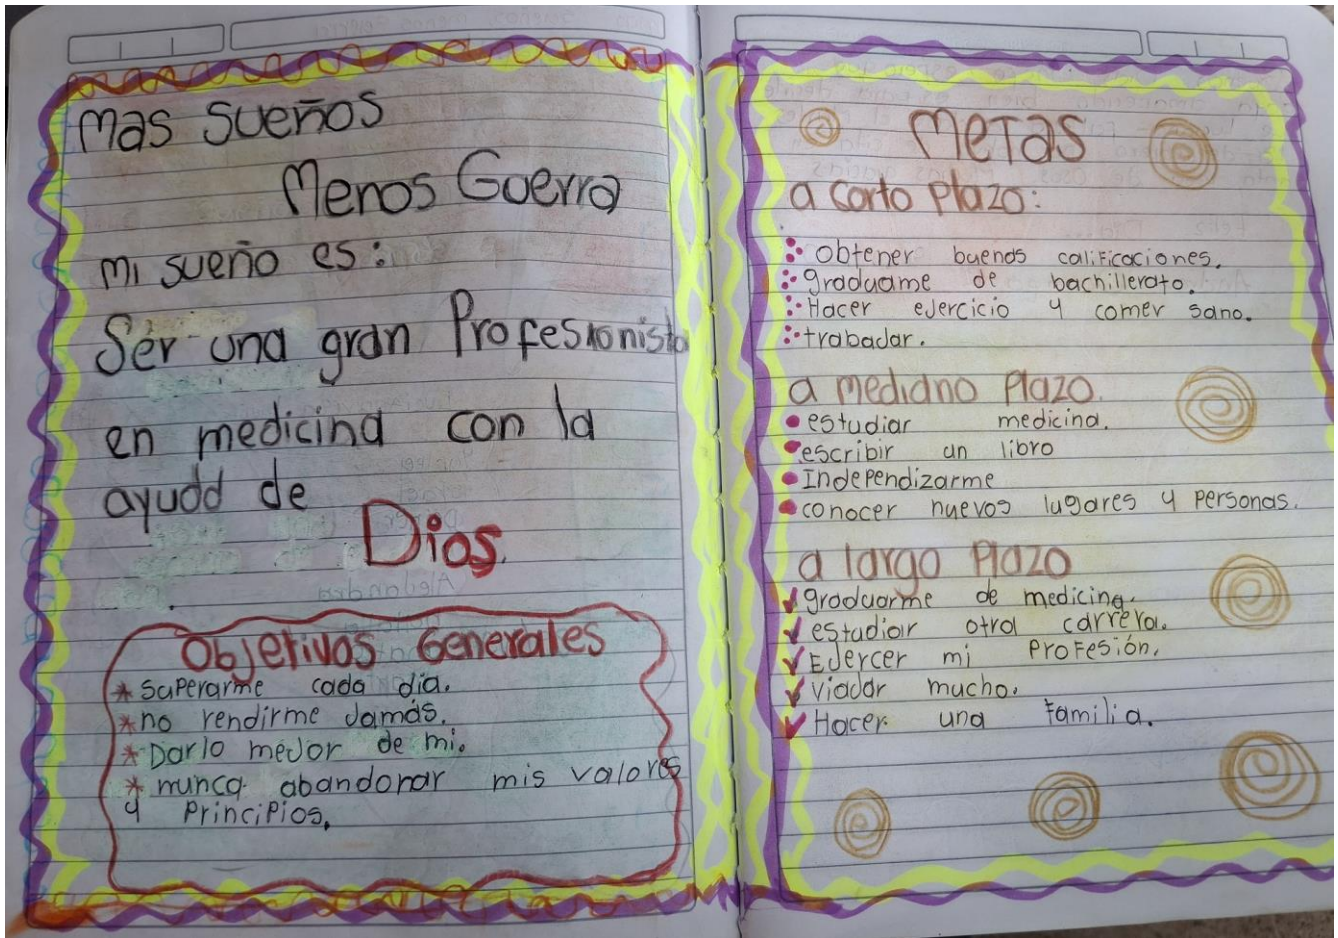 Mas sueños
Menos Guerra
mi sueño es:
Ser una gran Profesionista
en medicina con la
ayuda de
Dios.
Objetivos Generales
* superarme cada dia.
* no rendirme Jamás.
* Dar lo meJor de mi.
* nunca abandonar mis valores
y Principios.
Metas
a corto Plazo:
obtener buenas calificaciones.
graduame de bachillerato.
Hacer ejercicio y comer sano.
trabaJar.
a mediano Plazo.
• estudiar medicina.
• escribir un libro
• Independizarme
• conocer nuevos lugares y Personas.
a largo Plazo
✓ graduarme de medicina.
✓ estudiar otra carrera.
✓ EJercer mi Profesión.
✓ viaJar mucho.
✓ Hacer una familia.